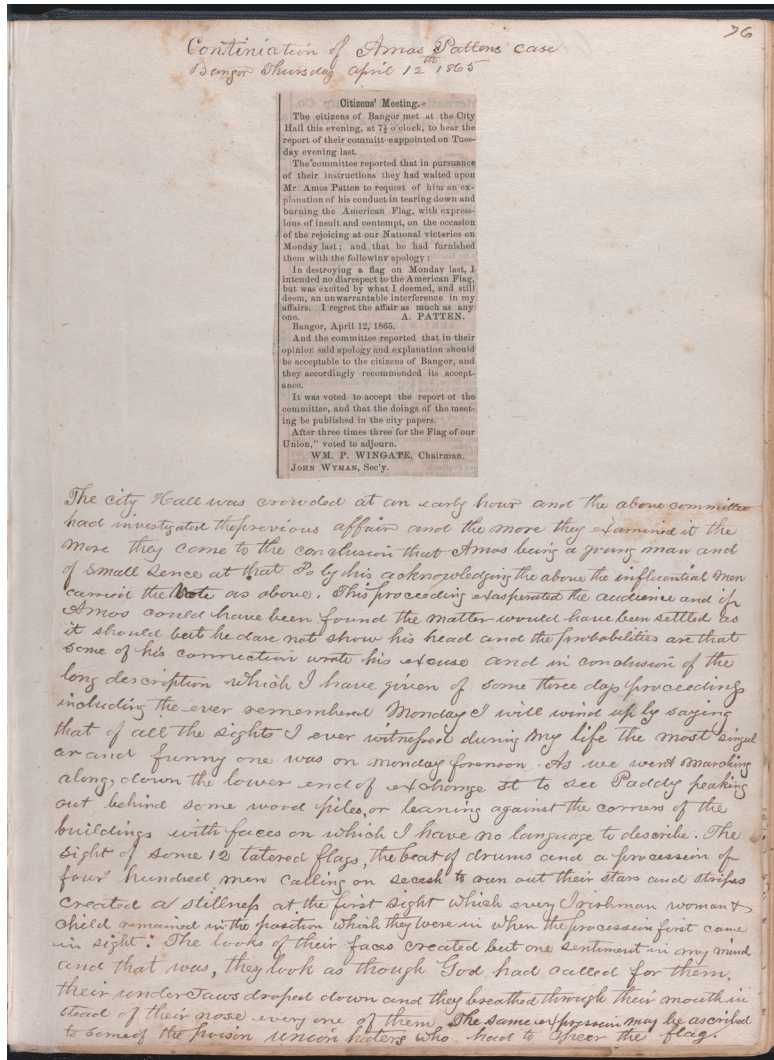 76
Continiation of Amos Pattens case
Bangor Thursday April 12th 1865
Citizens' Meeting.
The citizens of Bangor met at the City
Hall this evening, at 7½ o'clock, to hear the
report of their committ-eappointed on Tues-
day evening last.
The committee reported that in pursuance
of their instructions they had waited upon
Mr. Amos Patten to request of him an ex-
planation of his conduct in tearing down and
burning the American Flag, with express-
ions of insult and contempt, on the occasion
of the rejoicing at our National victories on
Monday last; and that he had furnished
them with the following apology:
In destroying a flag on Monday last, I
intended no disrespect to the American Flag,
but was excited by what I deemed, and still
deem, an unwarrantable interference in my
affairs. I regret the affair as much as any
one. A. PATTEN.
Bangor, April 12, 1865.
And the committee reported that in their
opinion said apology and explanation should
be acceptable to the citizens of Bangor, and
they accordingly recommended its accept-
ance.
It was voted to accept the report of the
committee, and that the doings of the meet-
ing be published in the city papers.
After three times three for the Flag of our
Union," voted to adjourn.
WM. P. WINGATE, Chairman.
JOHN WYMAN, Sec'y.
The city Hall was crowded at an early hour and the above committee
had investigated the previous affair and the more they examined it the
more they come to the conclusion that Amos being a young man and
of small sence at that So by his acknowledging the above the influential men
carried the Vote as above. This proceeding exasperated the audience and if
Amos could have been found the matter would have been settled as
it should but he dare not show his head and the probabilities are that
some of his connection wrote his excuse and in conclusion of the
long description which I have given of some three days proceedings
including the ever remembered Monday I will wind up by saying
that of all the sights I ever witnessed during my life the most singul
ar and funny one was on monday forenoon. As we went marching
along, down the lower end of exchange St to see Paddy peaking
out behind some wood piles, or leaning against the corners of the
buildings with faces on which I have no language to describe. The
sight of some 12 tatered flags, the beat of drums and a procession of
four hundred men calling on secesh to run out their stars and stripes
created a stillness at the first sight which every Irishman woman &
child remained in the position which they were in when the procession first came
in sight. The looks of their faces created but one sentiment in my mind
and that was, they look as though God had called for them.
their under Jaws droped down and they breathed through their mouth in
stead of their nose every one of them. The same expression may be ascribed
to some of the poison union haters who had to cheer the flag.